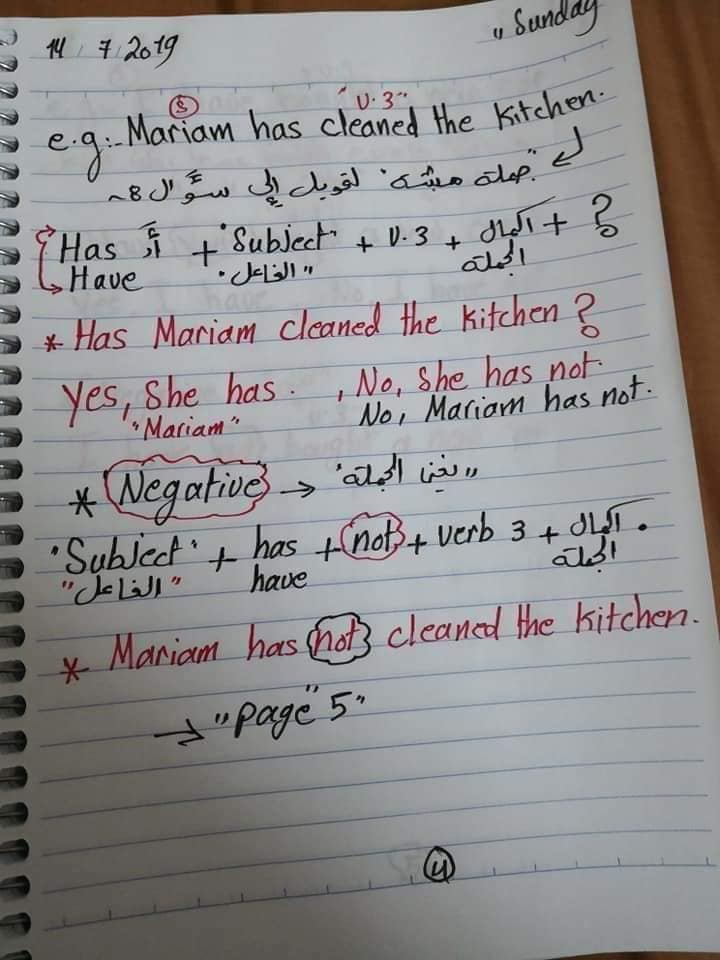 14 / 7 / 2019 "Sunday
Ⓢ "V.3"
e.g:- Mariam has cleaned the kitchen.
"جملة مثبتة" لتحويل إلى سؤال 8~
Has أو + "Subject" + V.3 + اكمال + ?
Have "الفاعل" الجملة
* Has Mariam cleaned the kitchen?
Yes, She has. , No, She has not.
"Mariam" No, Mariam has not.
* Negative → "نفي الجملة"
"Subject" + has + not + verb 3 + اكمال .
"الفاعل" have الجملة
* Mariam has not cleaned the kitchen.
→ "page 5"
4